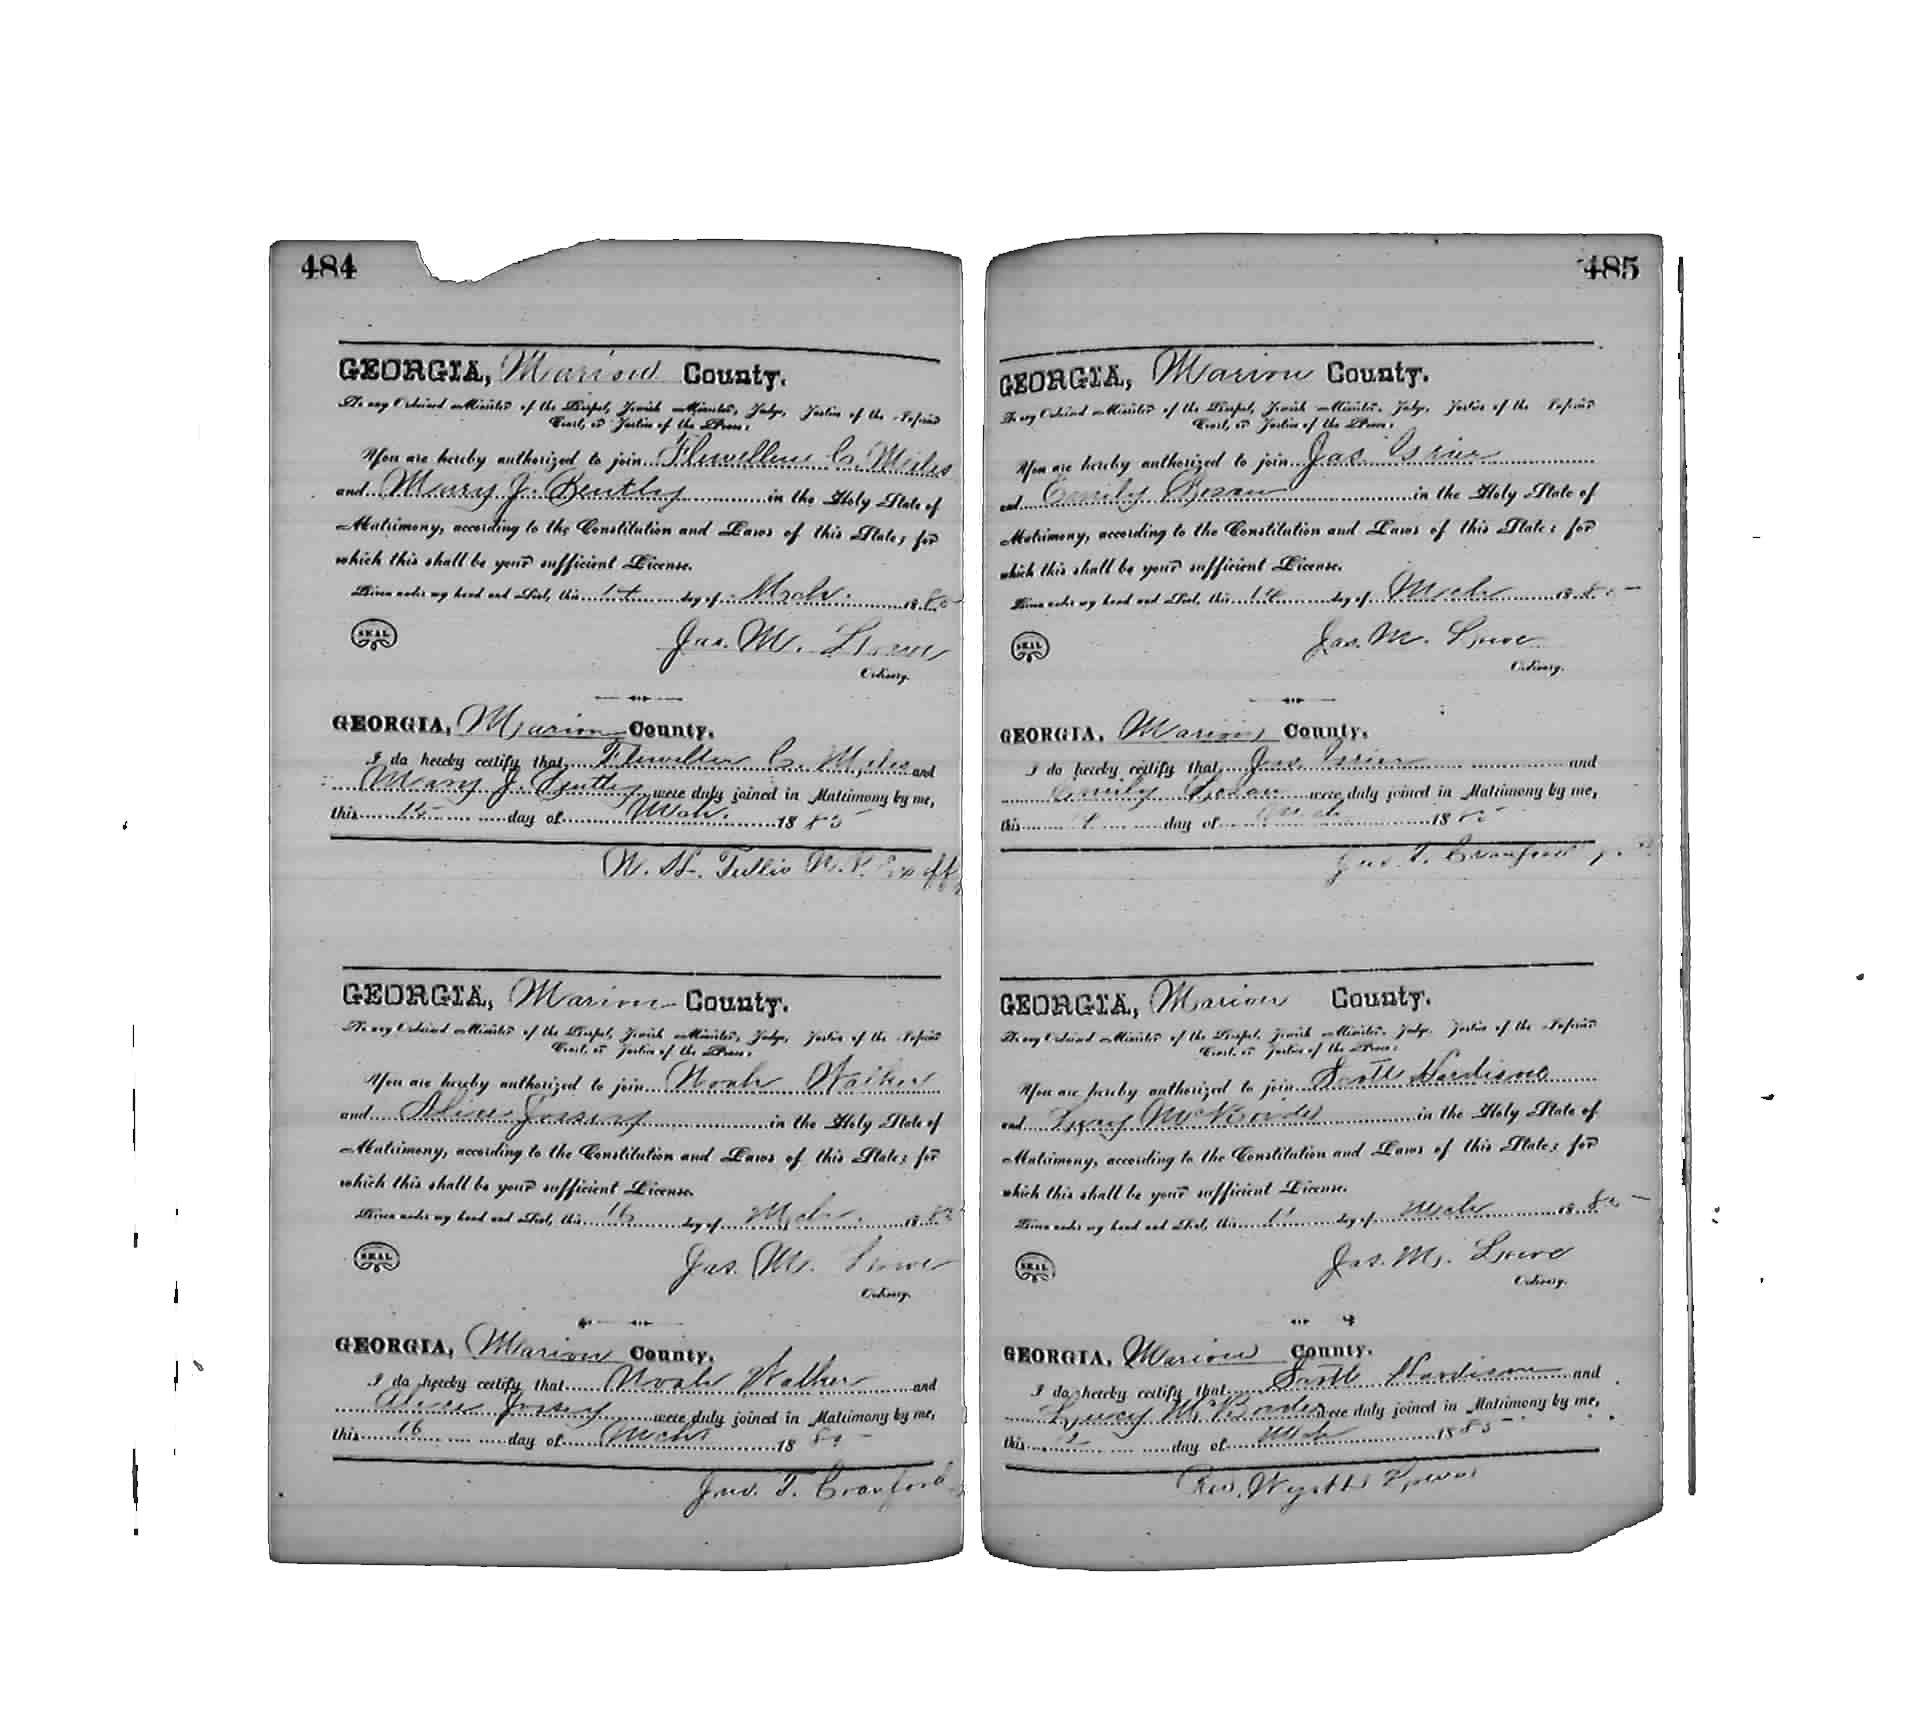 484
GEORGIA, Marion County.
To any Ordained Minister of the Gospel, Jewish Minister, Judge, Justice of the Inferior
Court, or Justice of the Peace:
You are hereby authorized to join Flewellen C. Miles
and Mary J. Bentley in the Holy State of
Matrimony, according to the Constitution and Laws of this State; for
which this shall be your sufficient License.
Given under my hand and Seal, this 14 day of Mch. 1885
SEAL
Jas. M. Lowe
Ordinary.
GEORGIA, Marion County.
I do hereby certify that Flewellen C. Miles and
Mary J. Bentley were duly joined in Matrimony by me,
this 15 day of Mch. 1885
W. H. Tullis N.P. Ex off
GEORGIA, Marion County.
To any Ordained Minister of the Gospel, Jewish Minister, Judge, Justice of the Inferior
Court, or Justice of the Peace:
You are hereby authorized to join Noah Walker
and Alice Jossey in the Holy State of
Matrimony, according to the Constitution and Laws of this State; for
which this shall be your sufficient License.
Given under my hand and Seal, this 16 day of Mch. 1885
SEAL
Jas. M. Lowe
Ordinary.
GEORGIA, Marion County.
I do hereby certify that Noah Walker and
Alice Jossey were duly joined in Matrimony by me,
this 16 day of Mch 1885
Jno. T. Crawford
485
GEORGIA, Marion County.
To any Ordained Minister of the Gospel, Jewish Minister, Judge, Justice of the Inferior
Court, or Justice of the Peace:
You are hereby authorized to join Jas. Grier
and Emily in the Holy State of
Matrimony, according to the Constitution and Laws of this State; for
which this shall be your sufficient License.
Given under my hand and Seal, this 14 day of Mch 1885
SEAL
Jas. M. Lowe
Ordinary.
GEORGIA, Marion County.
I do hereby certify that Grier and
Emily were duly joined in Matrimony by me,
this day of Mch 1885
Jno. T. Crawford
GEORGIA, Marion County.
To any Ordained Minister of the Gospel, Jewish Minister, Judge, Justice of the Inferior
Court, or Justice of the Peace:
You are hereby authorized to join Scott Hardison
and Lucy in the Holy State of
Matrimony, according to the Constitution and Laws of this State; for
which this shall be your sufficient License.
Given under my hand and Seal, this day of Mch 1885
SEAL
Jas. M. Lowe
Ordinary.
GEORGIA, Marion County.
I do hereby certify that Scott Hardison and
Lucy were duly joined in Matrimony by me,
this day of Mch 1885
Rev. Wyatt